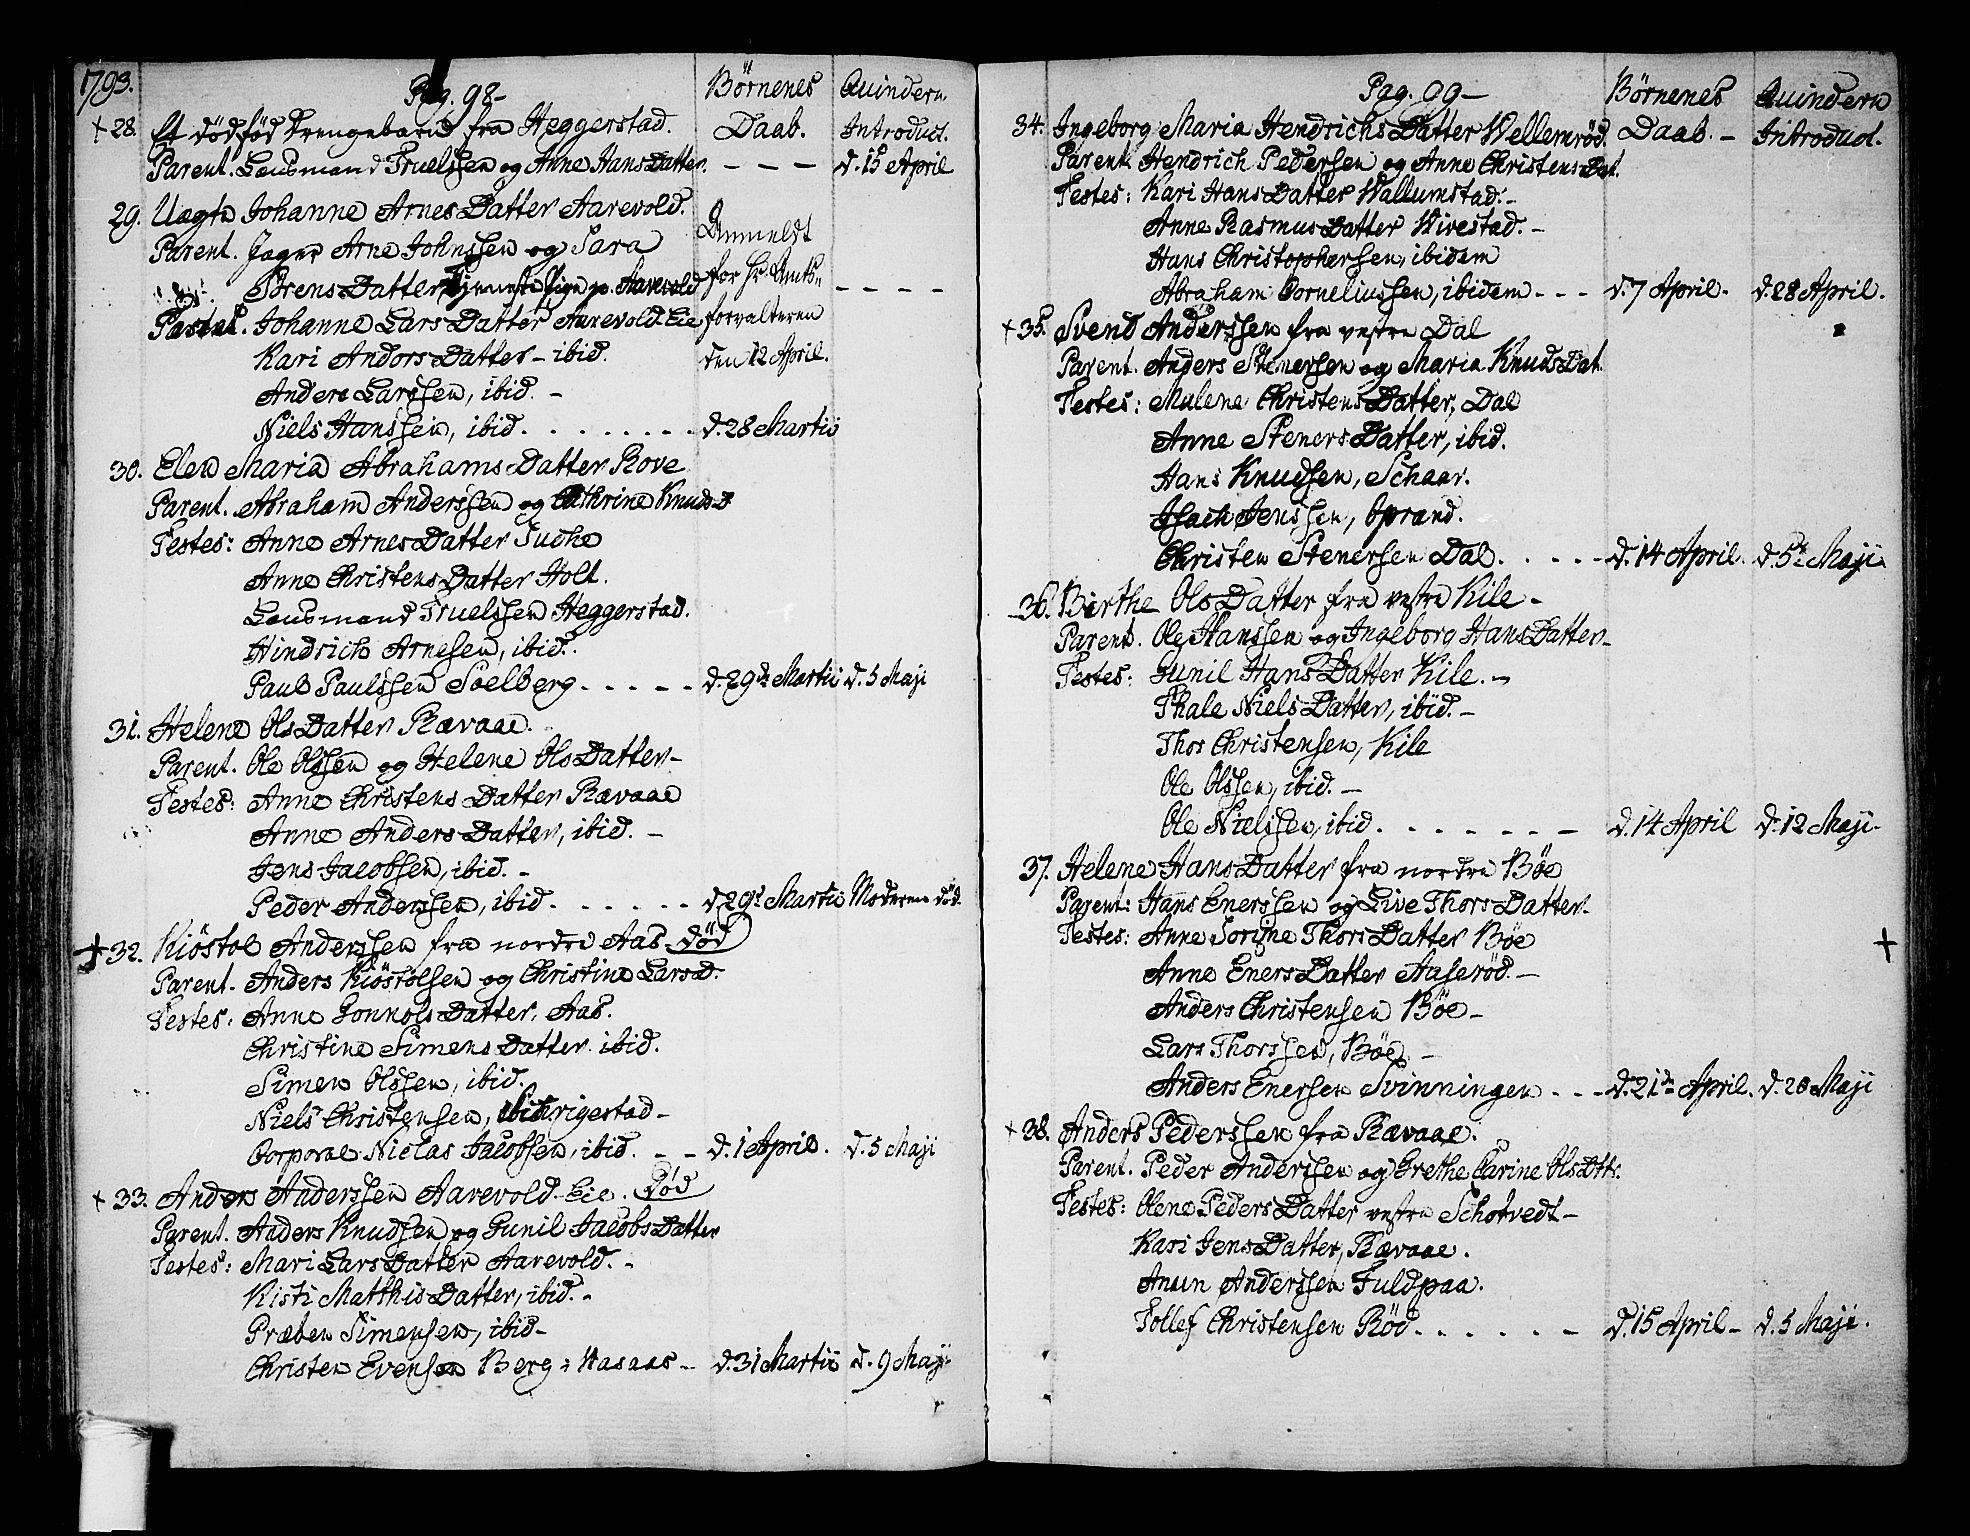 1793.
Pag. 98-
Børnenes Daab.
Quindern Introduct.
+ 28. Et dødfød Drengebarn fra Heggerstad.
Parent. Lensmand Truelssen og Anne HansDatter. - - - d. 15 April
29. Uægte Johanne ArnesDatter Aarevold.
Parent. Jager Arne Johnssen og Sara
SørensDatter Tjeneste Pige p. Aarevold
Anmeldt for Hr. Amts-forvalteren den 12 April. - - - -
Johanne LarsDatter Aarevold Eie
Kari AndersDatter - ibid.
Anders Larssen, ibid. -
Niels Hanssen, ibid. . . . . . . . - d. 28 Martii
30. Elen Maria AbrahamsDatter Rove
Parent. Abraham Anderssen og Cathrine KnudsD
Testes: Anne ArnesDatter Tudhe
Anne ChristensDatter Holt.
Lensmand Truelssen Heggerstad.
Hindrich Arnesen, ibid.
Paul Paulssen Soelberg . . - - - d. 29de Martii d. 5 Maji
31. Helene OlsDatter Rævaae.
Parent. Ole Olssen og Helene OlsDatter-
Testes: Anne ChristensDatter Rævaae
Anne AndersDatter, ibid. -
Jens Jacobsen, ibid. -
Peder Anderssen, ibid. . . . . . . d. 29d Martii Moderen død.
+ 32. Kiöstol Anderssen fra nordre Aas død
Parent. Anders Kiöstolsen og Christine Larsd.
Testes: Anne GonnolsDatter, Aas.
Christine SimensDatter. ibid.
Simen Olssen, ibid.
Niels Christensen, rigestad-
Corporal Niclas Jacobsen, ibid. - - d. 1 April. d. 5 Maji
+ 33. Anders Anderssen Aarevold-Eie. Død
Parent. Anders Knudsen og Gunil JacobsDatter
Testes: Mari LarsDatter Aarevold. -
Kisti MatthisDatter, ibid. -
Præben Simensen, ibid-
Christen Evensen Berg: Aasaas - d. 31 Martii d. 9 Maji
Pag. 99-
Børnenes Daab. -
Quindern Introduct.
34. Ingeborg Maria HendrichsDatter Wellemrød.
Parent. Hendrich Pedersen og Anne ChristensDat.
Testes: Kari HansDatter Wallumstad. -
Anne RasmusDatter Wivestad. -
Hans Christophersen, ibidem
Abraham Corneliussen, ibidem - - - d. 7 April. d. 28 April.
+ 35. Svend Anderssen fra vestre Dal
Parent. Anders Stenersen og Maria KnudsDat.
Testes: Malene ChristensDatter, Dal
Anne StenersDatter, ibid.
Hans Knudsen, Schaar.
Isach Jenssen, Oprand.
Christen Stenersen Dal. . . - - d. 14 April. d. 5te Maji
36. Birthe OlsDatter fra vestre Kile -
Parent. Ole Hanssen og Ingeborg HansDatter-
Testes: Gunil HansDatter Kile. -
Thale NielsDatter, ibid. -
Thor Christensen, Kile
Ole Olssen, ibid. -
Ole Nielssen, ibid. . . . . . - - d. 14 April d. 12 Maji.
37. Helene HansDatter fra nordre Böe
Parent: Hans Enerssen og Live ThorsDatter-
Testes: Anne Sorine ThorsDatter Böe
+
Anne EnersDatter Aaserød. -
Anders Christensen Böe -
Lars Thorssen, Böe -
Anders Enersen Svinningen - - - d. 21de April. d. 20 Maji
+ 38. Anders Pederssen fra Rævaae.
Parent. Peder Anderssen og Grethe Carine OlsDttr.
Testes: Olene PedersDatter vestre Schotvedt -
Kari JensDatter, Rævaae.
Anun Anderssen Fuldpaa.
Tollef Christensen Röd . . . . . - d. 15 April - d. 5 Maji.